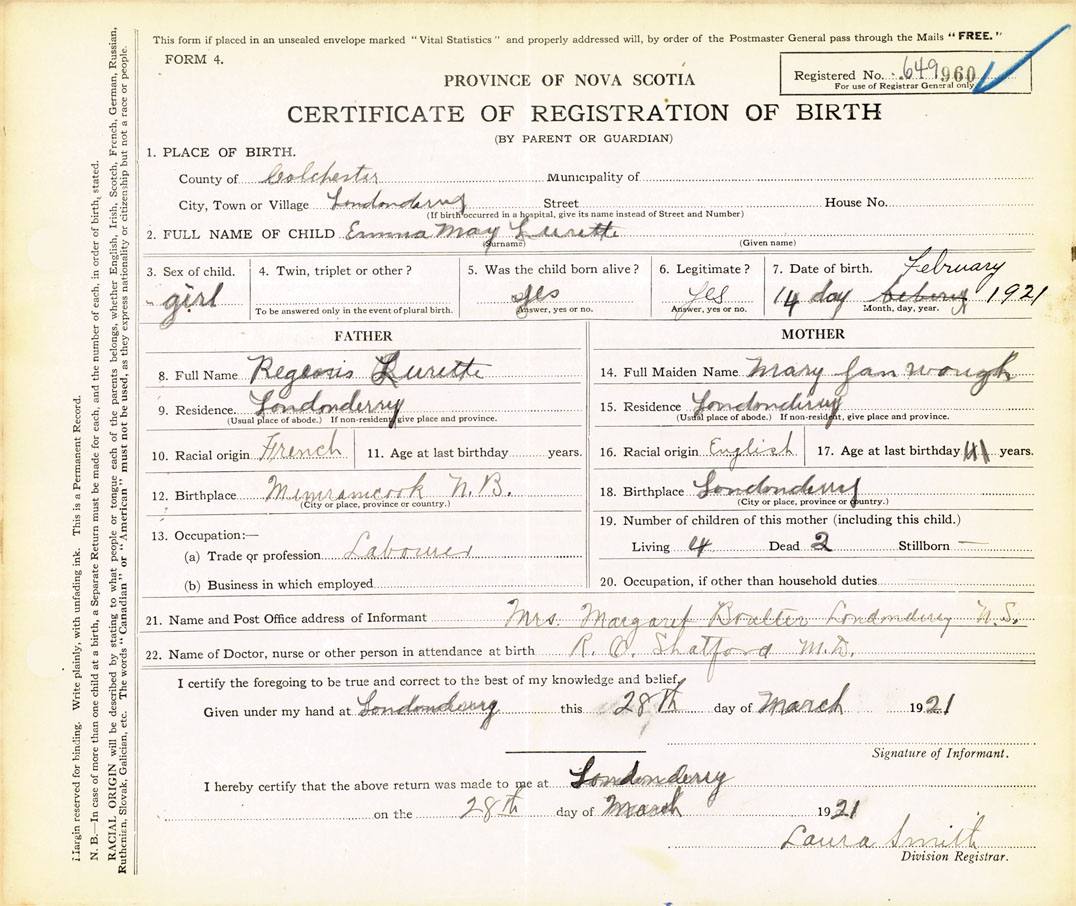 This form if placed in an unsealed envelope marked "Vital Statistics" and properly addressed will, by order of the Postmaster General pass through the Mails "FREE."
FORM 4.
Registered No. 649 960
For use of Registrar General only
PROVINCE OF NOVA SCOTIA
CERTIFICATE OF REGISTRATION OF BIRTH
(BY PARENT OR GUARDIAN)
1. PLACE OF BIRTH.
County of Colchester Municipality of
City, Town or Village Londonderry Street House No.
(If birth occurred in a hospital, give its name instead of Street and Number)
2. FULL NAME OF CHILD Emma May Lurette
(Surname) (Given name)
3. Sex of child. 4. Twin, triplet or other? 5. Was the child born alive? 6. Legitimate? 7. Date of birth. February
girl yes yes 14 day 1921
To be answered only in the event of plural birth. Answer, yes or no. Answer, yes or no. Month, day, year.
FATHER
8. Full Name Lurette
9. Residence. Londonderry
(Usual place of abode.) If non-resident, give place and province.
10. Racial origin French 11. Age at last birthday years.
12. Birthplace Memramcook N.B.
(City or place, province or country.)
13. Occupation:—
(a) Trade or profession Labourer
(b) Business in which employed
MOTHER
14. Full Maiden Name Mary Jan Wough
15. Residence Londonderry
(Usual place of abode.) If non-resident, give place and province.
16. Racial origin English 17. Age at last birthday 41 years.
18. Birthplace Londonderry
(City or place, province or country.)
19. Number of children of this mother (including this child.)
Living 4 Dead 2 Stillborn —
20. Occupation, if other than household duties
21. Name and Post Office address of Informant Mrs. Margaret Boulter Londonderry N.S.
22. Name of Doctor, nurse or other person in attendance at birth R. O. Shatford M.D.
I certify the foregoing to be true and correct to the best of my knowledge and belief.
Given under my hand at Londonderry this 28th day of March 1921
Signature of Informant.
I hereby certify that the above return was made to me at Londonderry
on the 28th day of March 1921
Laura Smith
Division Registrar.
Margin reserved for binding. Write plainly, with unfading ink. This is a Permanent Record.
N. B.—In case of more than one child at a birth, a Separate Return must be made for each, and the number of each, in order of birth, stated.
RACIAL ORIGIN will be described by stating to what people or tongue each of the parents belongs, whether English, Irish, Scotch, French, German, Russian,
Ruthenian, Slovak, Galician, etc. The words "Canadian" or "American" must not be used, as they express nationality or citizenship but not a race or people.